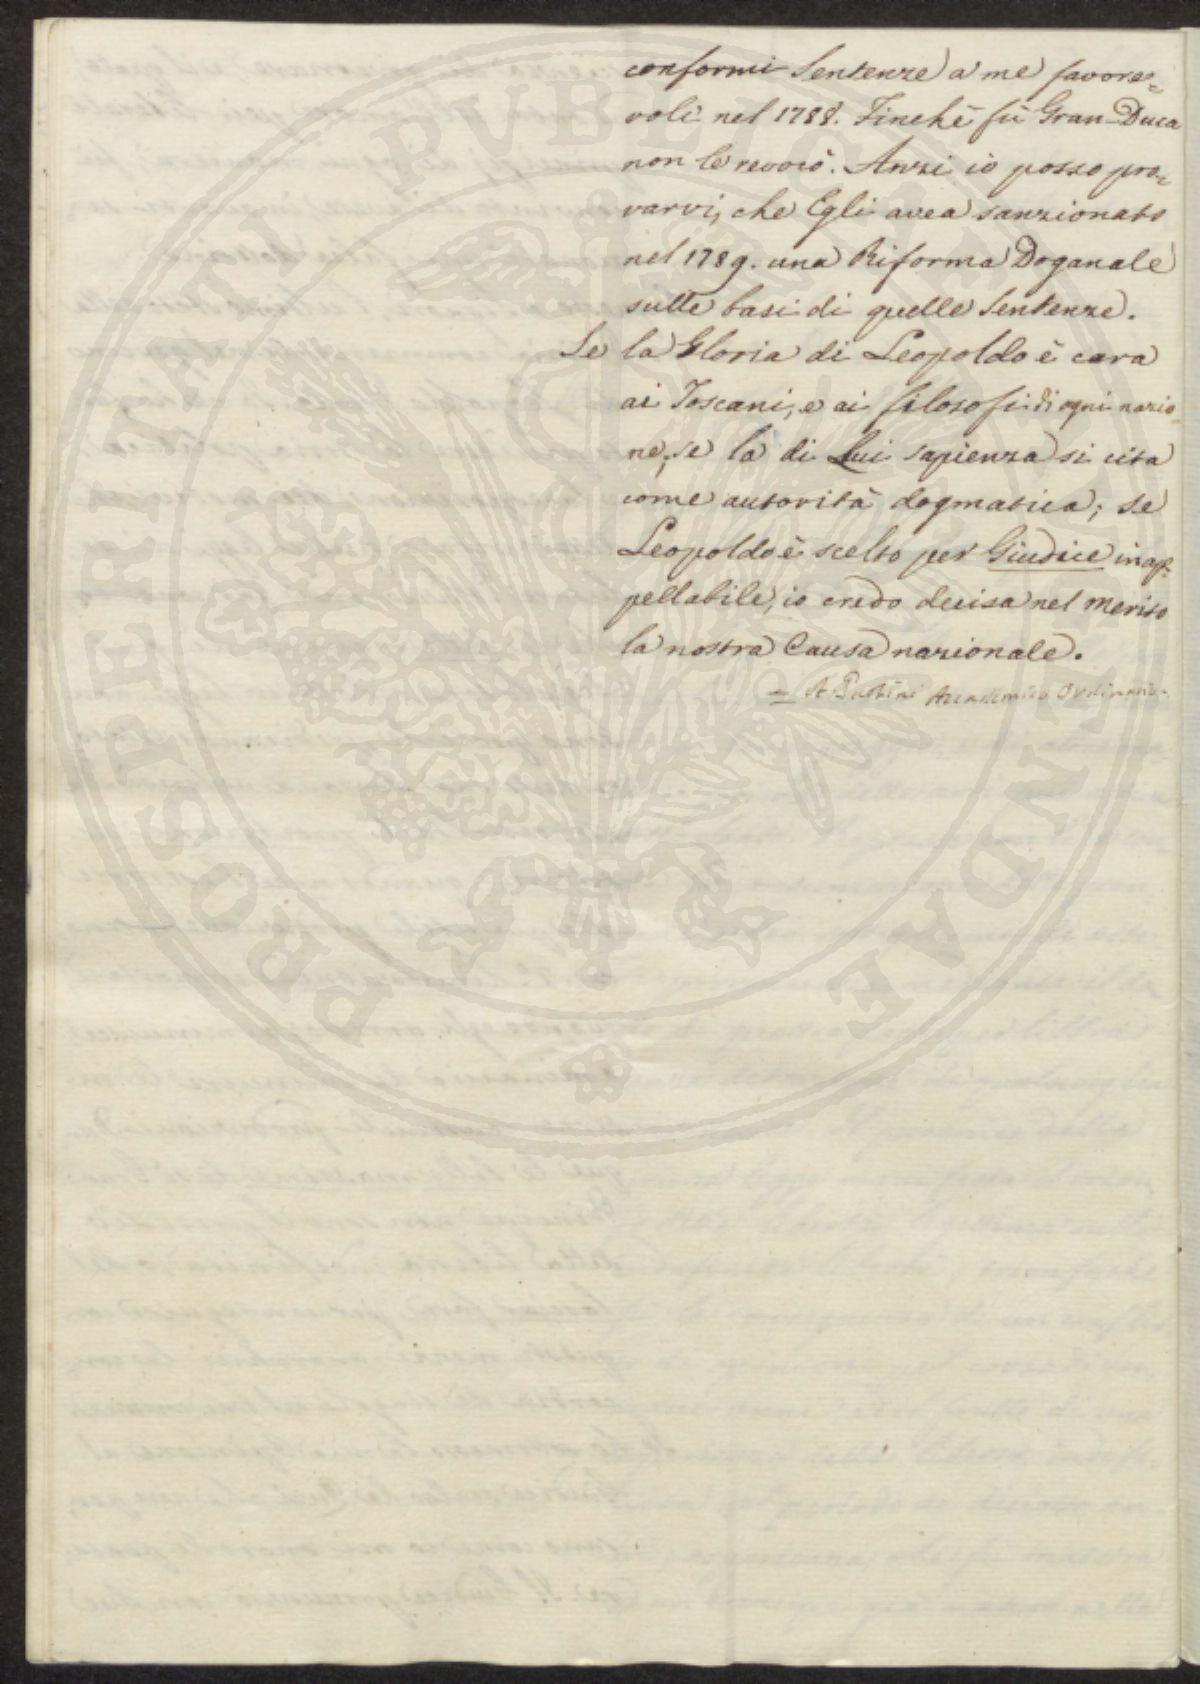 conformi Sentenze a me favore=
voli nel 1788. Finchè fù Gran-Duca
non le revocò. Anzi io posso pro=
varvi, che Egli avea sanzionato
nel 1789. una Riforma Doganale
sulle basi di quelle Sentenze.
Se la Gloria di Leopoldo è cara
ai Toscani, e ai filosofi di ogni nazio
ne, se la di Lui sapienza si cita
come autorità dogmatica; se
Leopoldo è scelto per Giudice inap=
pellabile, io credo decisa nel merito
la nostra Causa nazionale.
= A. Paolini Accademico Ordinario.
PROSPERITATI PVBLICAE AVGENDAE